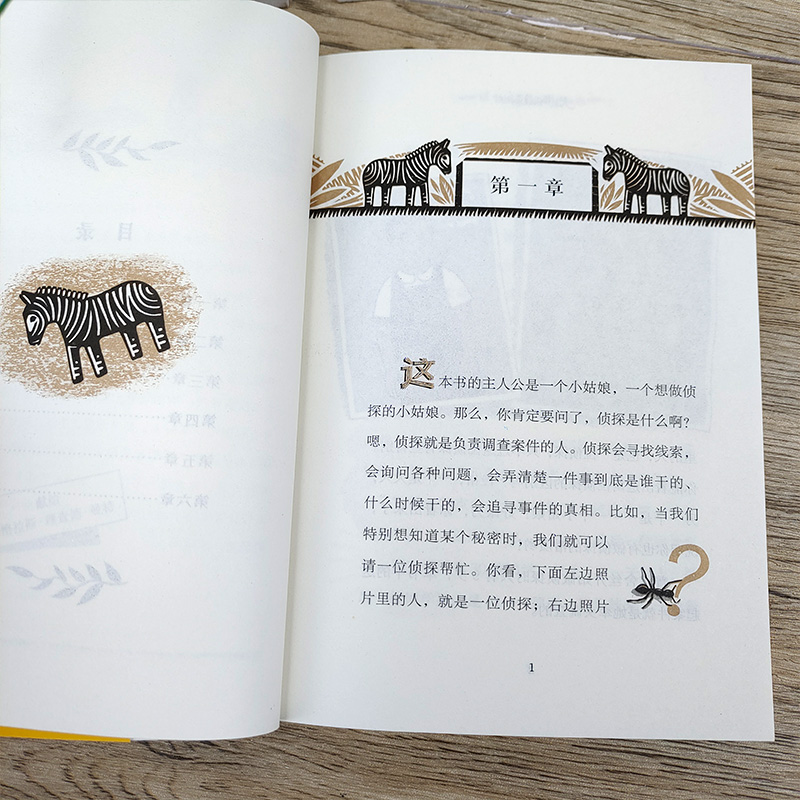 第一章
这本书的主人公是一个小姑娘，一个想做侦
探的小姑娘。那么，你肯定要问了，侦探是什么啊？
嗯，侦探就是负责调查案件的人。侦探会寻找线索，
会询问各种问题，会弄清楚一件事到底是谁干的、
什么时候干的，会追寻事件的真相。比如，当我们
特别想知道某个秘密时，我们就可以
请一位侦探帮忙。你看，下面左边照
片里的人，就是一位侦探；右边照片
1